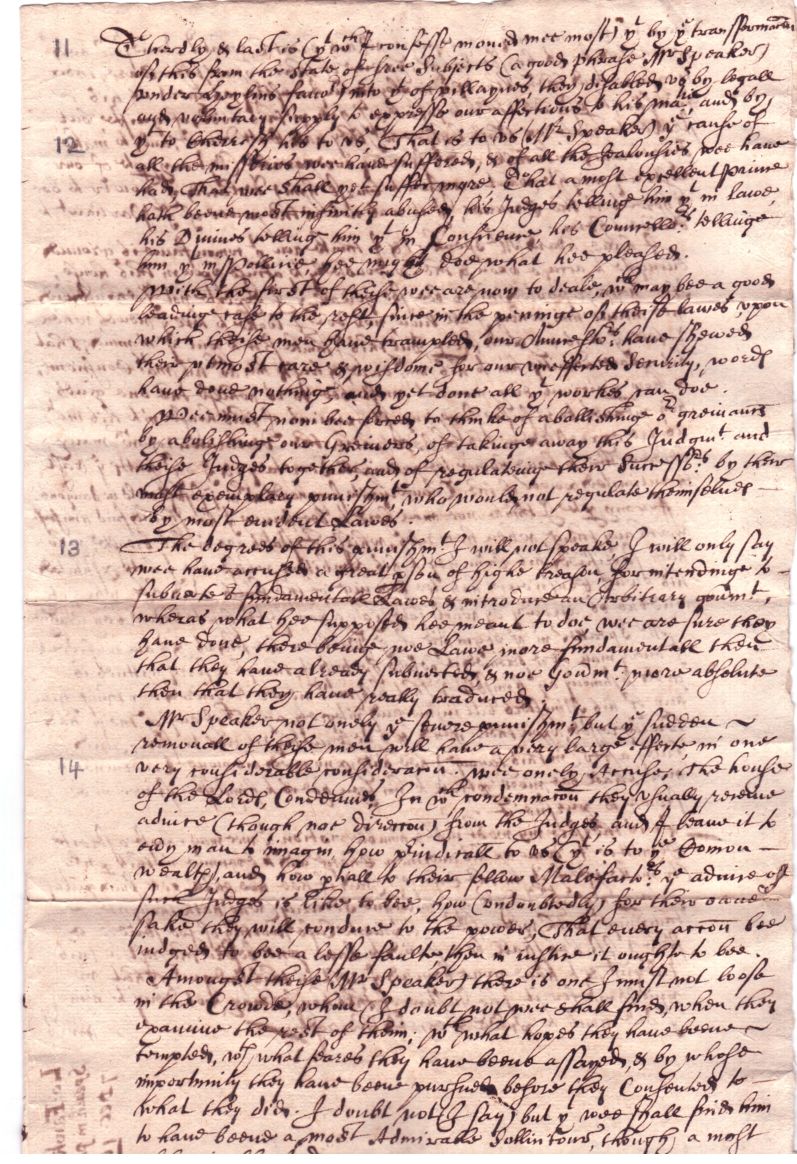 11 Therdly & last is (yt wch I confesse moved mee most) yt by ye transformacon
of this from the state of free Subjects (a good phrase Mr Speaker)
under into of pillagues, they disabled us by legall
and voluntary supply to expresse our affections to his matie, and by
12 yt to cherrish his to us. That is to us (Mr Speaker) ye cause of
all the misseries wee have suffered, & of all the Jealousies wee have
had, that wee shall yet suffer more. That a most excellent prince
hath beene most infinitly abused, his Judges tellinge him yt in lawe,
his Divines tellinge him yt in Conscience, his Councellrs tellinge
him yt in Pollicie hee might doe what hee pleased.
With the first of theise wee are now to deale, wch may bee a good
leadinge case to the rest, since in the penninge of theise lawes upon
which theise men have trampled, our Ancestrs have shewed
their utmost care & wisdome for our uneffected security, words
have done nothinge, and yet done all yt workes can doe.
Wee must now bee forced to thinke of abollishinge or greivances
by abolishinge our Greivers, of takinge away this Judgmt and
theise Judges together, and of regulateinge their Successrs by their
most exemplary punishmt, who would not regulate themselves
by most evident Lawes.
13 The degrees of this punishmt I will not speake I will only say
wee have accused a great pson of highe treason, for intendinge to
subverte or fundamentall Lawes & introduce an Arbitrary govmt,
wheras what hee supposed hee meant to doe wee are sure they
have done, there beinge noe Lawe more fundamentall then
that they have already subverted, & noe Govmt more absolute
then that they have really traduced.
Mr Speaker not onely ye severe punishmt but ye sudden
removall of theise men will have a very large effecte in one
14 very considerable consideracon. Wee onely Accuse, The house
of the Lords Condemnes, In wch condemnacon they usually receive
advice (though not direccon) from the Judges, and I leave it to
evry man to imagin how pjudicall to us (yt is to ye Common
wealth), and how pciall to their fellow Malefactrs ye advice of
such Judges is like to bee, how (undoubtedly) for their owne
sake they will conduce to the power, That every accon bee
iudged to bee a lesse faulte then in iustice it oughte to bee.
Amongst theise (Mr Speaker) there is one I must not loose
in the Crowde, whom (I doubt not wee shall find, when they
examine the rest of them, wth what hopes they have beene
tempted, wth what feares they have beene assayed, & by whose
importunity they have beene pursued before they Consented to
what they did. I doubt not (I say) but yt wee shall find him
to have beene a most Admirable Sollicitour, though a most